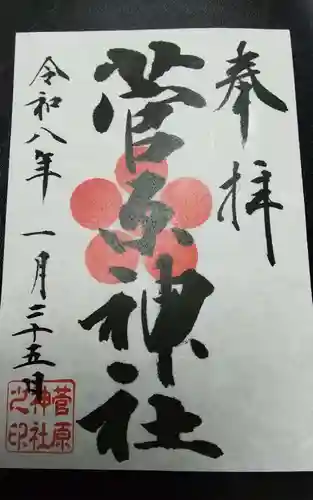 奉拝
菅原神社
令和八年一月二十五日
菅原
神社
之印